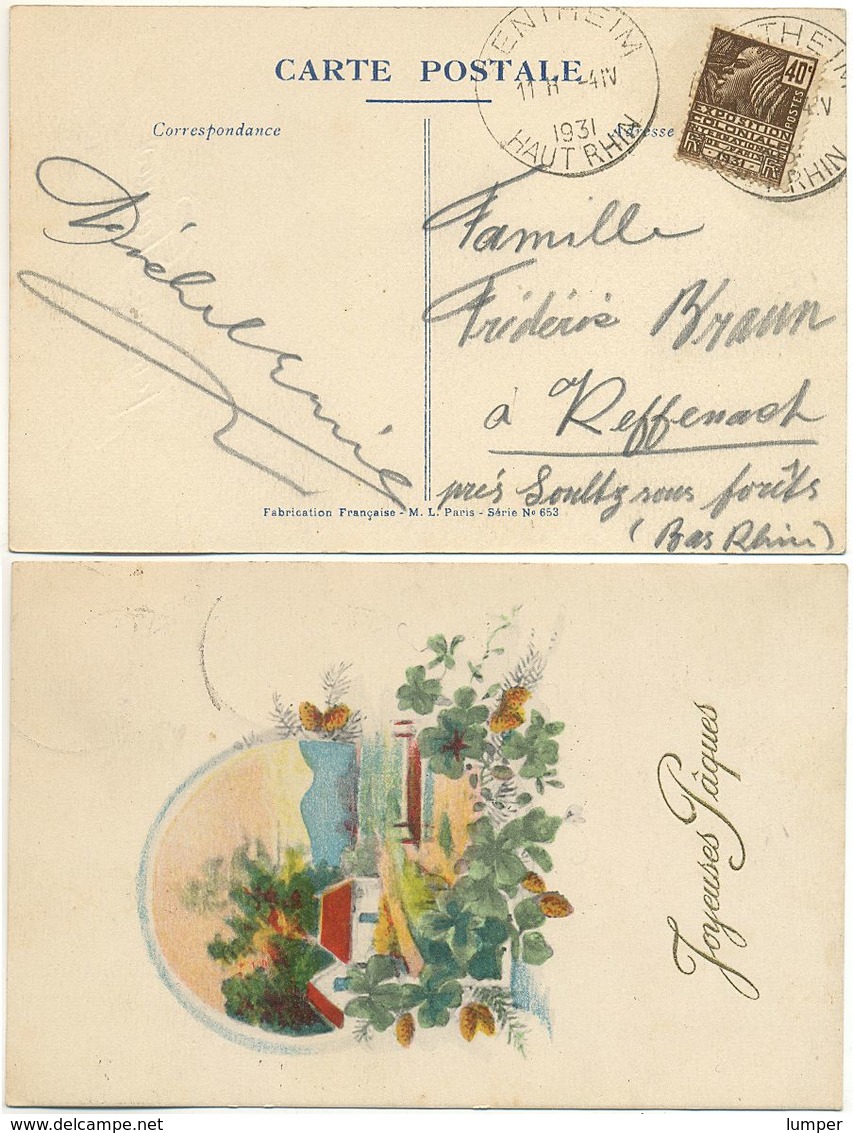 CARTE POSTALE
Correspondance
Adresse
ENTHEIM
11 H -4 IV
1931
HAUT RHIN
THEIM
4 IV
RHIN
40c
POSTES
EXPOSITION
COLONIALE
INTERNATIONALE
1931
Famille
Frédéric Braun
à Keffenach
près Soultz sous forêts
(Bas Rhin)
Fabrication Française - M. L. Paris - Série No 653
Joyeuses Pâques
www.delcampe.net
lumper